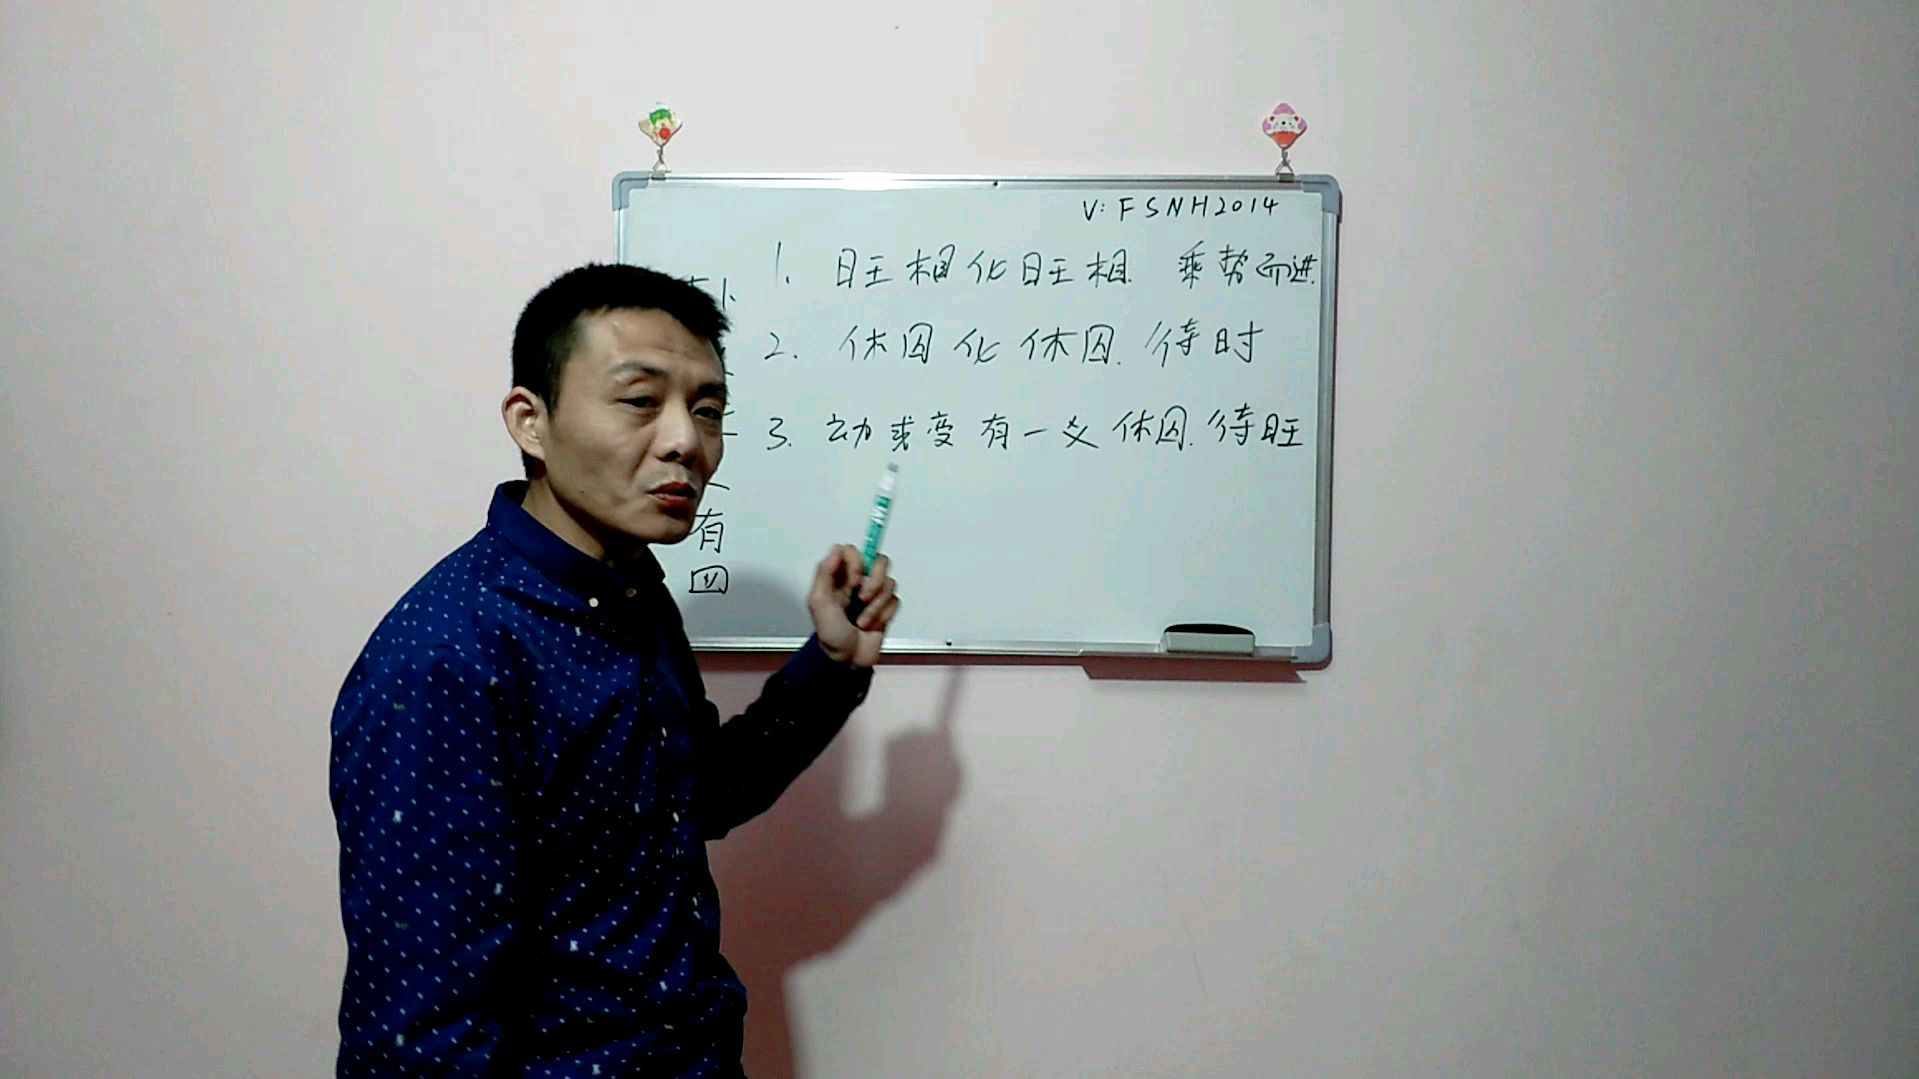 V: FSNH2014
1. 旺相化旺相. 乘势而进.
2. 休囚化休囚. 待时
3. 动或变有一爻休囚. 待旺
有
四